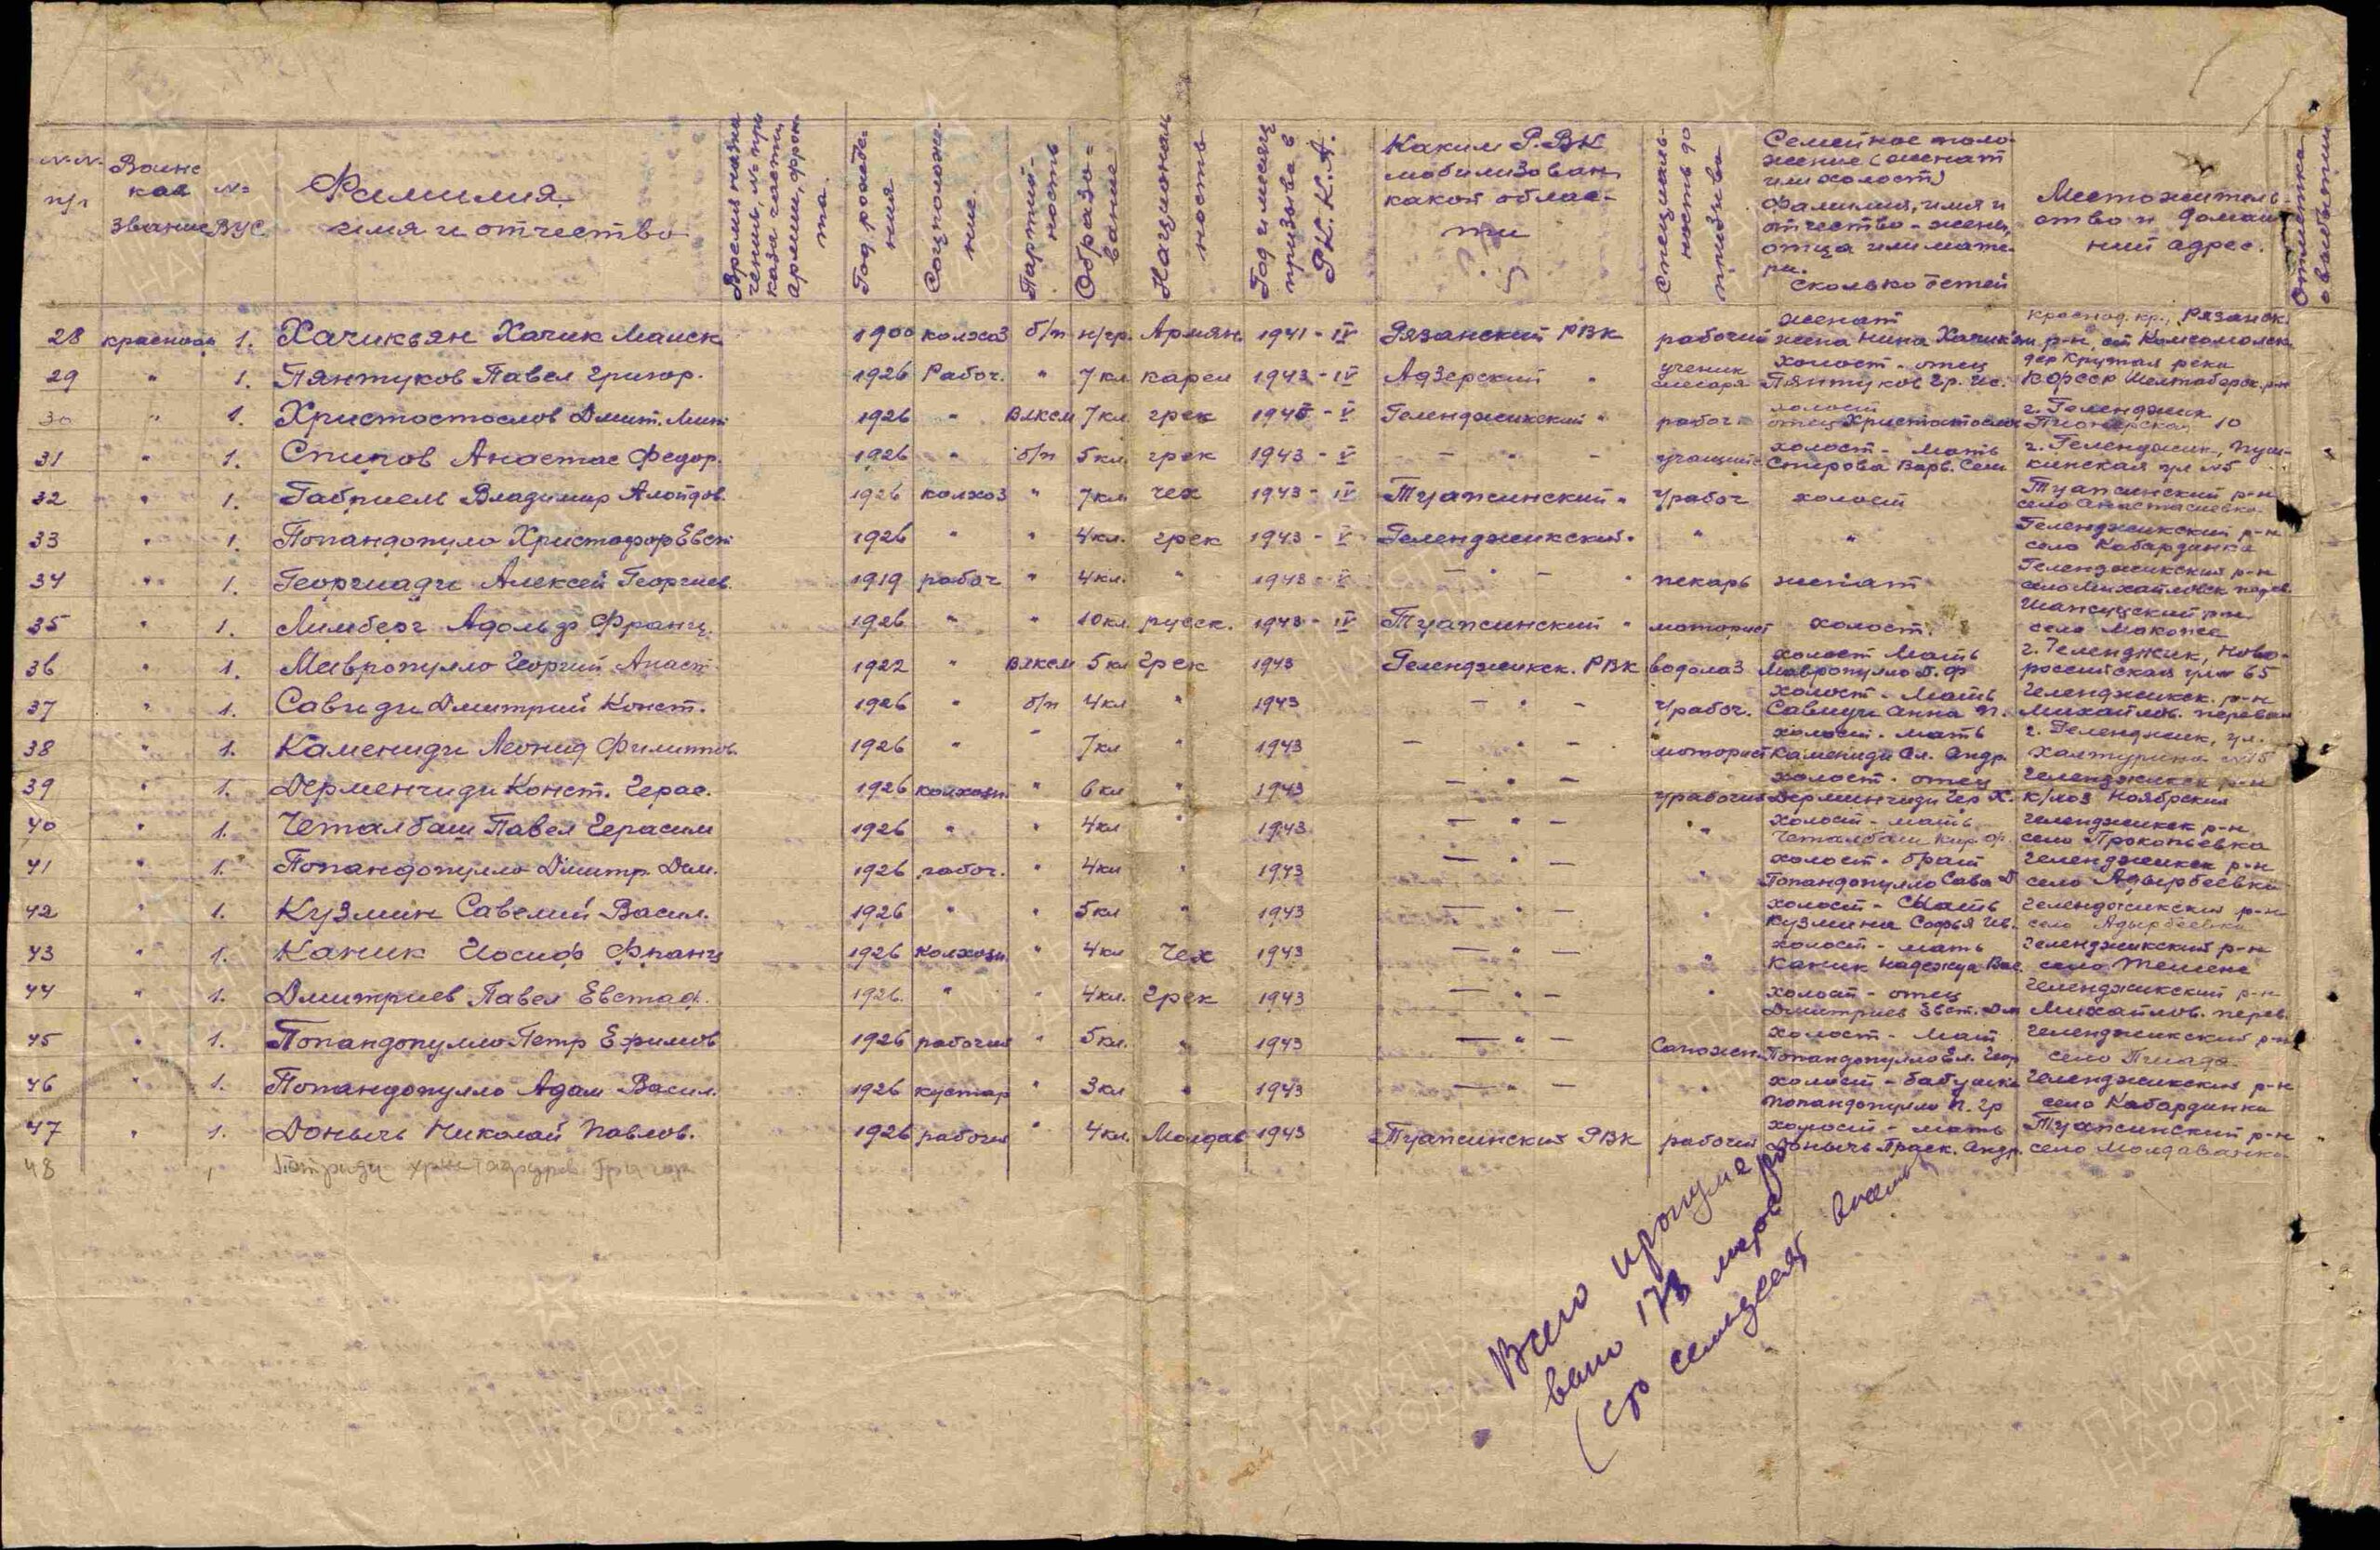 №№ п/п | Воинское звание | № ВУС | Фамилия, имя и отчество | Время назначения, № приказа части, армии, фронта. | Год рождения | Соцположение. | Партийность | Образование | Национальность | Год и месяц призыва в Р.К.К.А. | Каким Р.ВК мобилизован, какой области | Специальность до призыва | Семейное положение (женат или холост) Фамилия, имя и отчество - жены, отца или матери. Сколько детей | Местожительство и домашний адрес. | Отметка о выбытии
28 красноар 1. Хачикьян Хачик Маиск 1900 колхоз б/п н/гр. Армян. 1941 - IV Рязанский РВК рабочий женат жена Нина Хачикьян Краснод. кр., Рязанск. р-н, ст Комсомольск
29 " 1. Пянтуков Павел Григор. 1926 Рабоч. " 7 кл. карел 1943 - IV Адзерский " ученик слесаря холост - отец Пянтуков Гр. Ис. дер Крутая река КФССР р-н
30 " 1. Христостослов Дмит. Мит. 1926 " ВЛКСМ 7 кл. грек 1943 - V Геленджикский " рабоч. холост отец Христостослов г. Геленджик Пионерская 10
31 " 1. Спиров Анастас Федор. 1926 " б/п 5 кл. грек 1943 - V — " — учащийс холост - мать Спирова Варв. Сем г. Геленджик, Пушкинская ул №5
32 " 1. Габриель Владимир Алойдов. 1926 колхоз " 7 кл. чех 1943 - IV Туапсинский " ч/рабоч холост Туапсинский р-н село Анастасиевка
33 " 1. Попандопуло Христофор Евст. 1926 " " 4 кл. грек 1943 - V Геленджикский " " " Геленджикский р-н село Кабардинка
34 " 1. Георгиади Алексей Георгиев. 1919 рабоч " 4 кл. " 1943 - V — " — " пекарь женат Геленджикский р-н село Михайловск перев.
35 " 1. Лимберг Адольф Франц. 1926 " " 10 кл. русск. 1943 - IV Туапсинский " моторист холост. Шапсугский р-н село Макопсе
36 " 1. Мавропуло Георгий Анаст. 1922 " ВЛКСМ 5 кл грек 1943 Геленджикск. РВК водолаз холост Мать Мавропуло Д. Ф г. Геленджик, Новороссийская ул 65
37 " 1. Савиди Дмитрий Конст. 1926 " б/п 4 кл " 1943 — " — ч/рабоч. холост - Мать Савиди Анна П. Геленджикск. р-н Михайлов. перевал
38 " 1. Камениди Леонид Филиппов. 1926 " " 7 кл " 1943 — " — моторист холост - мать Камениди Ел. Андр. г. Геленджик, ул. Халтурина №15
39 " 1. Дерменчиди Конст. Герас. 1926 колхозн. " 6 кл " 1943 — " — ч/рабочий холост - отец Дерминчиди Гер Х. Геленджикск р-н к/хоз Ноябрский
40 " 1. Четалбаш Павел Герасим 1926 " " 4 кл " 1943 — " — " холост - мать Четалбаш Кир Ф. Геленджикск р-н село Прокопьевка
41 " 1. Попандопулло Дмитр. Дем. 1926 рабоч. " 4 кл " 1943 — " — " холост - брат Попандопулло Сава Д Геленджикск р-н село Адырбеевка
42 " 1. Кузмин Савелий Васил. 1926 " " 5 кл " 1943 — " — " холост - Мать Кузмина Софья Ив. Геленджикский р-н село Адырбеевка
43 " 1. Каник Иосиф Франц 1926 колхозн. " 4 кл чех 1943 — " — " холост - мать Каник Надежда Вас. Геленджикский р-н село Тешебс
44 " 1. Дмитриев Павел Евстаф. 1926. " " 4 кл. грек 1943 — " — " холост - отец Дмитриев Евст. Дм Геленджикский р-н Михайлов. перев.
45 " 1. Попандопулло Петр Ефимов 1926 рабочий " 5 кл. " 1943 — " — Сапожн. холост - Мат Попандопулло Ел. Геор Геленджикский р-н село Пшада
46 " 1. Попандопулло Адам Васил. 1926 кустар " 3 кл " 1943 — " — " холост - бабушка Попандопулло П. Гр Геленджикский р-н село Кабардинка
47 " 1. Донычь Николай Павлов. 1926 рабочий " 4 кл. Молдав 1943 Туапсинский РВК рабочий холост - мать Донычь Праск. Андр. Туапсинский р-н село Молдаванка
48
Всего пронумеро
вано 173 листов
(сто семьдесят